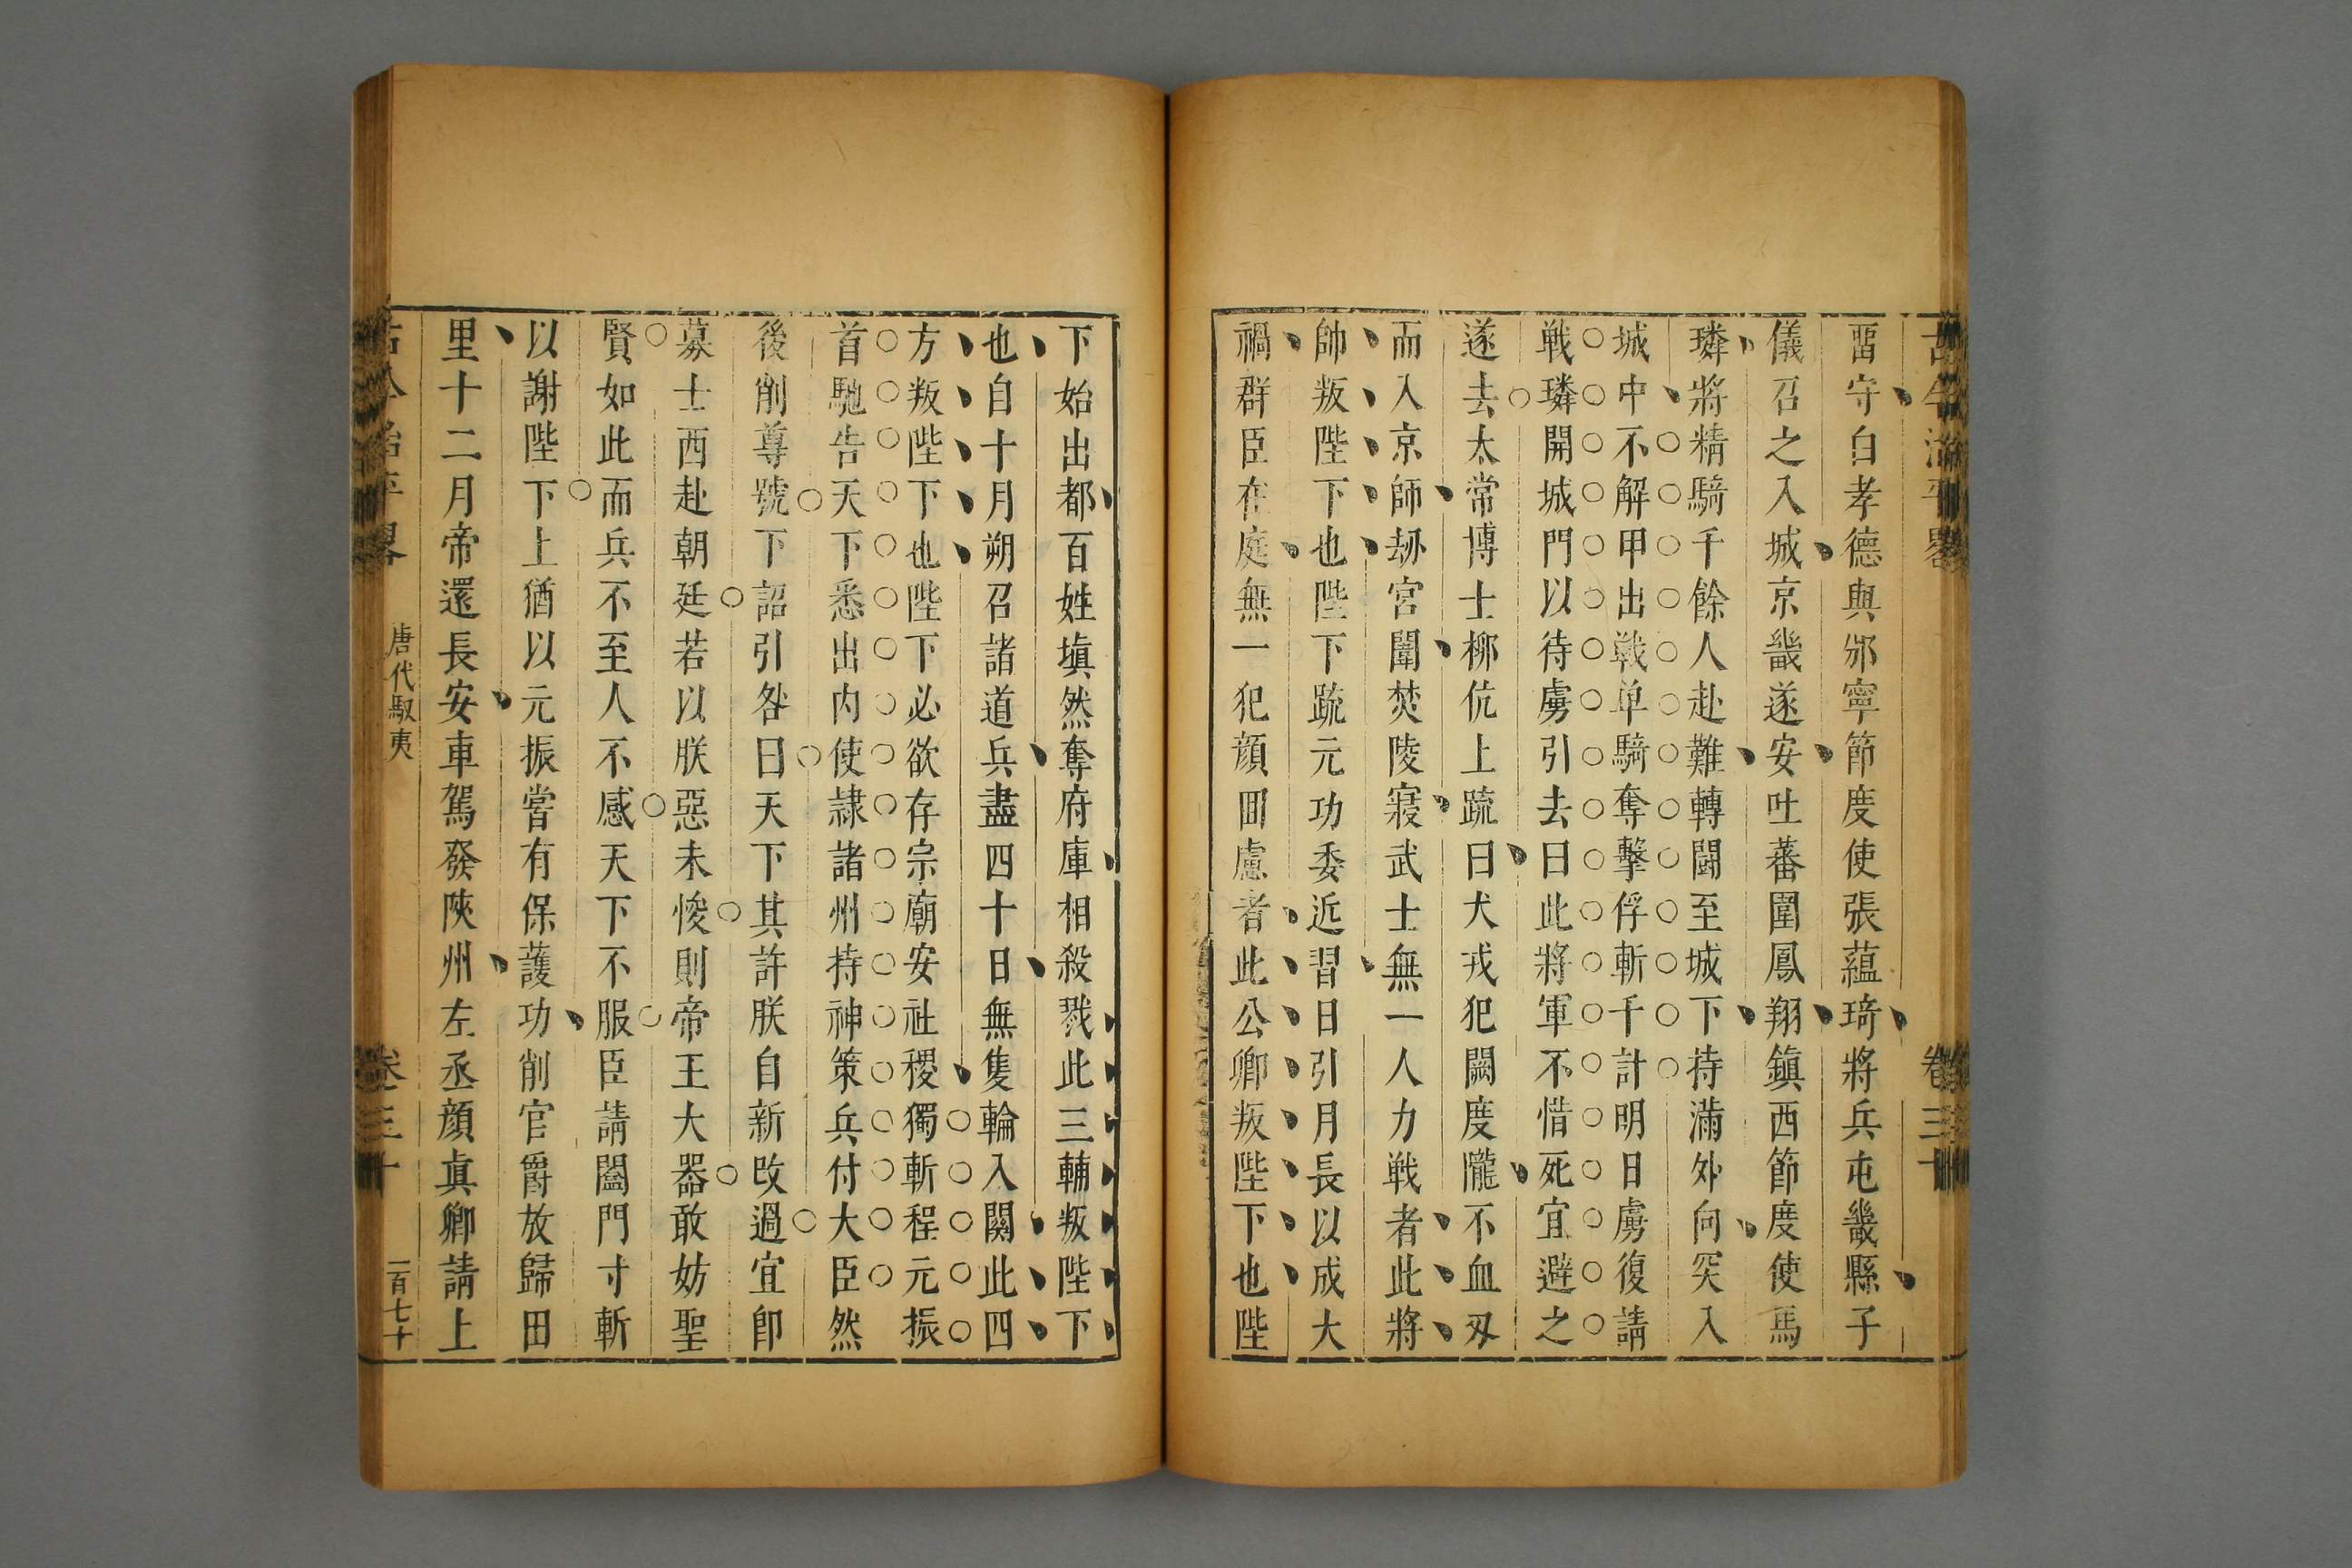 古今治平畧
卷三十
畱守白孝德與邠寧節度使張蘊琦將兵屯畿縣子
儀召之入城京畿遂安吐蕃圍鳳翔鎮西節度使馬
璘將精騎千餘人赴難轉鬪至城下持滿外向突入
城中不解甲出戰单騎奪擊俘斬千計明日虜復請
戰璘開城門以待虜引去曰此將軍不惜死宜避之
遂去太常博士栁伉上疏曰犬戎犯闕度隴不血刃
而入京師刼宮闈焚陵寢武士無一人力戰者此將
帥叛陛下也陛下疏元功委近習日引月長以成大
禍群臣在庭無一犯顔囬慮者此公卿叛陛下也陛
下始出都百姓填然奪府庫相殺戮此三輔叛陛下
也自十月朔召諸道兵盡四十日無隻輪入關此四
方叛陛下也陛下必欲存宗廟安社稷獨斬程元振
首馳告天下悉出内使隷諸州持神策兵付大臣然
後削尊號下詔引咎曰天下其許朕自新改過宜卽
募士西赴朝廷若以朕惡未悛則帝王大器敢妨聖
賢如此而兵不至人不感天下不服臣請闔門寸斬
以謝陛下上猶以元振嘗有保護功削官爵放歸田
里十二月帝還長安車駕發陝州左丞顔眞卿請上
古今治平畧
唐代馭夷
卷三十
一百七十